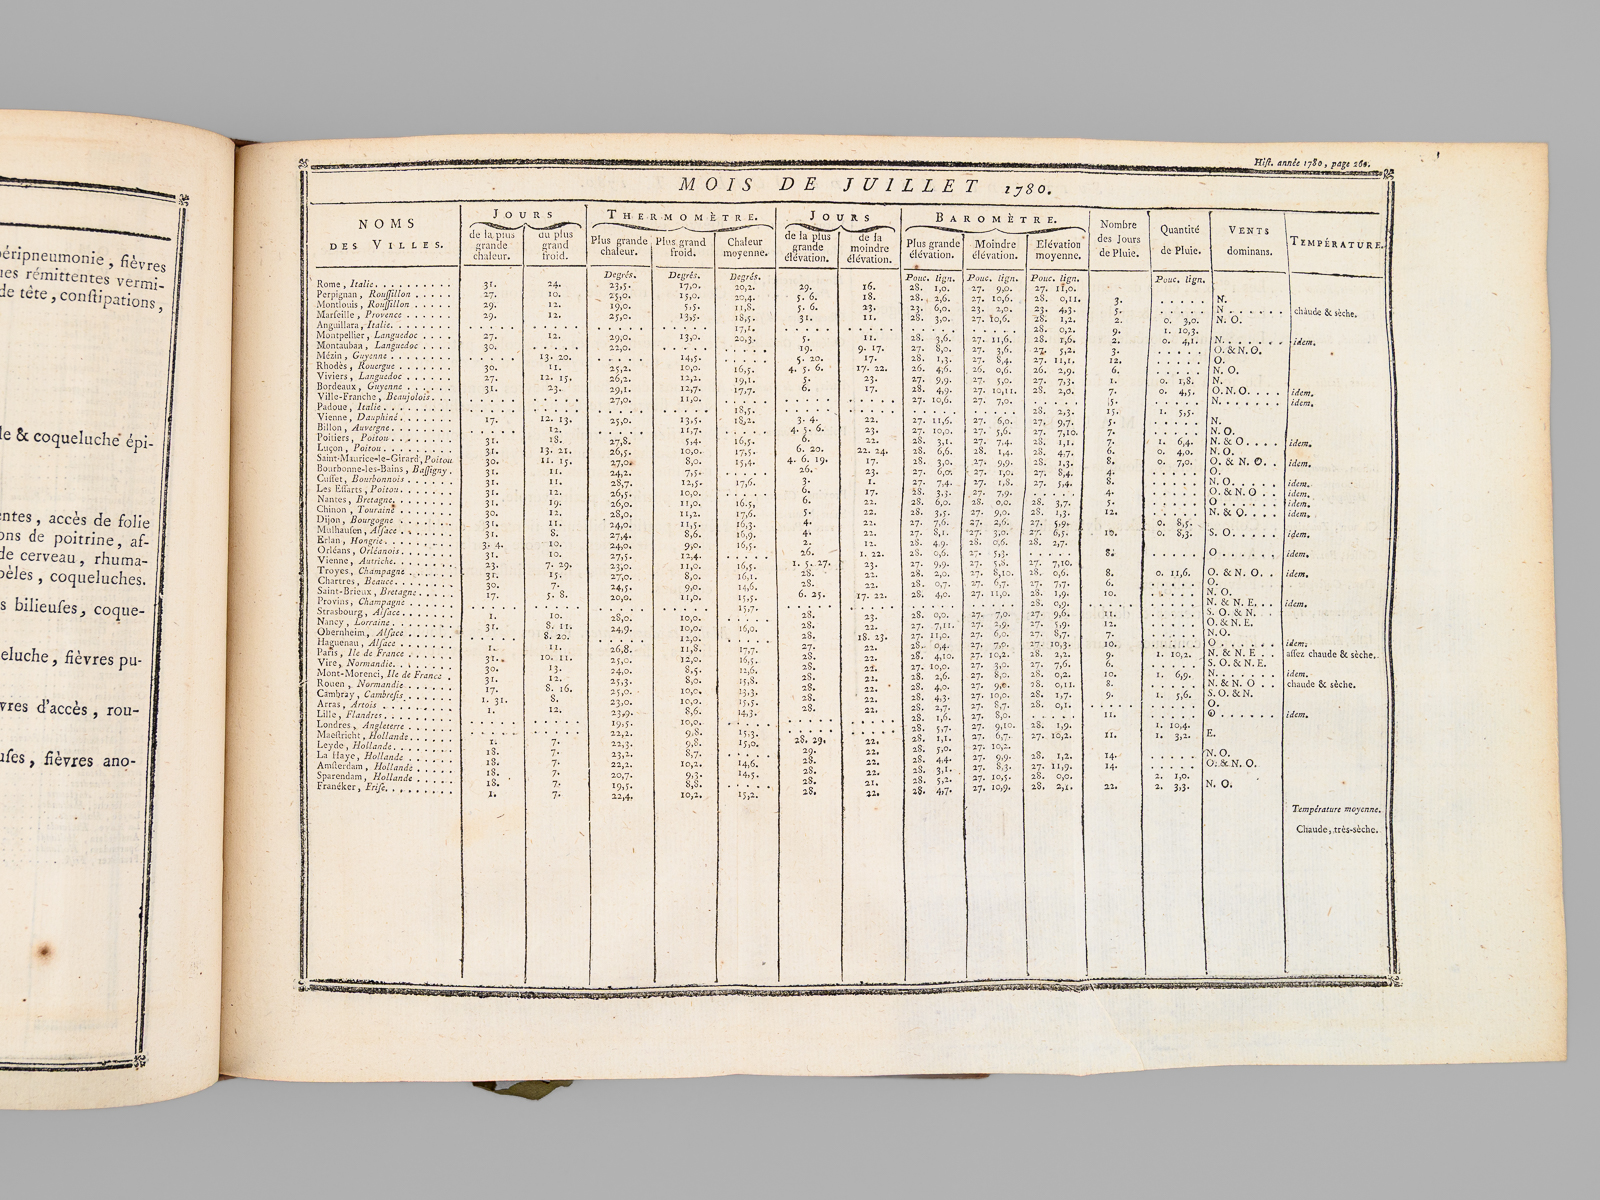 péripneumonie, fièvres
ues rémittentes vermi-
de tête, conſtipations,
le & coqueluche épi-
entes, accès de folie
ons de poitrine, af-
de cerveau, rhuma-
pèles, coqueluches.
s bilieuſes, coque-
eluche, fièvres pu-
vres d'accès, rou-
uſes, fièvres ano-
Hiſt. année 1780, page 260.
MOIS DE JUILLET 1780.
NOMS DES VILLES.
JOURS
de la plus grande chaleur.
du plus grand froid.
THERMOMÈTRE.
Plus grande chaleur.
Plus grand froid.
Chaleur moyenne.
JOURS
de la plus grande élévation.
de la moindre élévation.
BAROMÈTRE.
Plus grande élévation.
Moindre élévation.
Elévation moyenne.
Nombre des Jours de Pluie.
Quantité de Pluie.
VENTS dominans.
TEMPÉRATURE.
Degrés. Degrés. Degrés. Pouc. lign. Pouc. lign. Pouc. lign. Pouc. lign.
Rome, Italie. 31. 24. 23,5. 17,0. 20,2. 29. 16. 28. 1,0. 27. 9,0. 27. 11,0.
Perpignan, Rouſſillon 27. 10. 25,0. 15,0. 20,4. 5. 6. 18. 28. 2,6. 27. 10,6. 28. 0,11. 3. N.
Montlouis, Rouſſillon 29. 12. 19,0. 5,5. 11,8. 5. 6. 23. 23. 6,0. 23. 2,0. 23. 4,3. 5. N chaude & sèche.
Marſeille, Provence 29. 12. 25,0. 13,5. 18,5. 31. 11. 28. 3,0. 27. 10,6. 28. 1,2. 2. 0. 3,0. N. O.
Anguillara, Italie. 17,1. 28. 0,2. 9. 1. 10,3.
Montpellier, Languedoc 27. 12. 29,0. 13,0. 20,3. 5. 11. 28. 3,6. 27. 11,6. 28. 1,6. 2. 0. 4,1. N. idem.
Montauban, Languedoc 30. 22,0. 19. 9. 17. 27. 8,0. 27. 3,6. 27. 5,2. 3. O. & N. O.
Mézin, Guyenne 13. 20. 14,5. 5. 20. 17. 28. 1,3. 27. 8,4. 27. 11,1. 12. O.
Rhodès, Rouergue 30. 11. 25,2. 10,0. 16,5. 4. 5. 6. 17. 22. 26. 4,6. 26. 0,6. 26. 2,9. 6. N. O.
Viviers, Languedoc 27. 12. 15. 26,2. 12,2. 19,1. 5. 23. 27. 9,9. 27. 5,0. 27. 7,3. 1. 0. 1,8. N.
Bordeaux, Guyenne 31. 23. 29,1. 12,7. 17,7. 6. 17. 28. 4,9. 27. 10,11. 28. 2,0. 7. 0. 4,5. O. N. O. idem.
Ville-Franche, Beaujolois. 27,0. 11,0. 27. 10,6. 27. 7,0. 5. N. idem.
Padoue, Italie 18,5. 28. 2,3. 15. 1. 5,5.
Vienne, Dauphiné 17. 12. 13. 25,0. 13,5. 18,2. 3. 4. 22. 27. 11,6. 27. 6,0. 27. 9,7. 5. N.
Billon, Auvergne. 12. 11,7. 4. 5. 6. 23. 27. 10,0. 27. 5,6. 27. 7,10. 7. N. O.
Poitiers, Poitou 31. 18. 27,8. 5,4. 16,5. 6. 22. 28. 3,1. 27. 7,4. 28. 1,1. 7. 1. 6,4. N. & O idem.
Luçon, Poitou 31. 13. 21. 26,5. 10,0. 17,5. 6. 20. 22. 24. 28. 6,6. 28. 1,4. 28. 4,7. 6. 0. 4,0. N. O.
Saint-Maurice-le-Girard, Poitou 30. 11. 15. 27,0. 8,0. 15,4. 4. 6. 19. 17. 28. 3,0. 27. 9,9. 28. 1,3. 8. 0. 7,0. O. & N. O. idem.
Bourbonne-les-Bains, Baſſigny. 31. 11. 24,2. 7,5. 26. 23. 27. 6,0. 27. 1,0. 27. 8,4. 4. O.
Cuſſet, Bourbonnois 31. 11. 28,7. 12,5. 17,6. 3. 1. 27. 7,4. 27. 1,8. 27. 5,4. 8. N. O. idem.
Les Eſſarts, Poitou 31. 12. 26,5. 10,0. 6. 17. 28. 3,3. 27. 7,9. 4. O. & N. O idem.
Nantes, Bretagne. 31. 19. 26,0. 11,0. 16,5. 6. 22. 28. 6,0. 28. 0,0. 28. 3,7. 5. O. idem.
Chinon, Touraine 30. 12. 28,0. 11,2. 17,6. 5. 22. 28. 3,5. 27. 9,0. 28. 1,3. 12. N. & O. idem.
Dijon, Bourgogne 31. 11. 24,0. 11,5. 16,3. 4. 22. 27. 7,6. 27. 2,6. 27. 5,9. 0. 8,5.
Mulhauſen, Alſace 31. 8. 27,4. 8,6. 16,9. 4. 22. 27. 8,1. 27. 3,0. 27. 6,5. 10. 0. 8,3. S. O. idem.
Erlan, Hongrie. 3. 4. 10. 24,0. 9,0. 16,5. 2. 12. 28. 4,9. 28. 0,6. 28. 2,7.
Orléans, Orléanois 31. 10. 27,5. 12,4. 26. 1. 22. 28. 0,6. 27. 5,3. 8. O idem.
Vienne, Autriche. 23. 7. 29. 23,0. 11,0. 16,5. 1. 5. 27. 23. 27. 9,9. 27. 5,8. 27. 7,10.
Troyes, Champagne 31. 15. 27,0. 8,0. 16,1. 28. 22. 28. 2,0. 27. 8,10. 28. 0,6. 8. 0. 11,6. O. & N. O. idem.
Chartres, Beauce 30. 7. 24,5. 9,0. 14,6. 28. 22. 28. 0,7. 27. 6,7. 27. 7,7. 6. O.
Saint-Brieux, Bretagne 17. 5. 8. 20,0. 11,0. 15,5. 6. 25. 17. 22. 28. 4,0. 27. 11,0. 28. 1,9. 10. N. O.
Provins, Champagne 15,7. 28. 0,9. N. & N. E. idem.
Strasbourg, Alſace. 1. 10. 28,0. 10,0. 28. 23. 28. 0,0. 27. 7,0. 27. 9,6. 11. S. O. & N.
Nancy, Lorraine 31. 8. 11. 24,9. 10,0. 16,0. 28. 22. 27. 7,11. 27. 2,9. 27. 5,9. 12. O. & N. E.
Obernheim, Alſace 8. 20. 12,0. 28. 18. 23. 27. 11,0. 27. 6,0. 27. 8,7. 7. N. O.
Haguenau, Alſace 1. 11. 26,8. 11,8. 17,7. 27. 22. 28. 0,4. 27. 7,0. 27. 10,3. 10. O idem.
Paris, Ile de France 31. 10. 11. 25,0. 12,0. 16,5. 28. 22. 28. 4,10. 27. 10,3. 28. 2,2. 9. 1. 10,2. N. & N. E aſſez chaude & sèche.
Vire, Normandie. 30. 13. 24,0. 8,5. 12,6. 28. 21. 27. 10,0. 27. 3,0. 27. 7,6. 6. S. O. & N. E.
Mont-Morenci, Ile de France 31. 12. 25,3. 8,0. 15,8. 28. 22. 28. 2,6. 27. 8,0. 28. 0,2. 10. 1. 6,9. N. idem.
Rouen, Normandie 17. 8. 16. 25,0. 10,0. 13,3. 28. 22. 28. 4,0. 27. 9,0. 28. 0,11. 8. N. & N. O chaude & sèche.
Cambray, Cambreſis 1. 31. 8. 23,0. 10,0. 15,5. 28. 22. 28. 4,3. 27. 10,0. 28. 1,7. 9. 1. 5,6. S. O. & N.
Arras, Artois 1. 12. 23,9. 8,6. 14,3. 28. 22. 28. 2,7. 27. 8,7. 28. 0,1. O.
Lille, Flandres 19,5. 10,0. 28. 1,6. 27. 8,0. 11. O idem.
Londres, Angleterre 22,2. 9,8. 15,3. 28. 5,7. 27. 9,10. 28. 1,9. 1. 10,4.
Maeſtricht, Hollande 1. 7. 22,3. 9,8. 15,0. 28. 29. 22. 28. 1,1. 27. 6,7. 27. 10,2. 11. 1. 3,2. E.
Leyde, Hollande. 18. 7. 23,2. 8,7. 29. 22. 28. 5,0. 27. 10,2.
La Haye, Hollande 18. 7. 22,2. 10,2. 14,6. 28. 22. 28. 4,4. 27. 9,9. 28. 1,2. 14. N. O.
Amſterdam, Hollande 18. 7. 20,7. 9,3. 14,5. 28. 22. 28. 3,1. 27. 8,3. 27. 11,9. 14. O. & N. O.
Sparendam, Hollande 18. 7. 19,5. 8,8. 28. 21. 28. 5,2. 27. 10,5. 28. 0,0. 2. 1,0.
Franéker, Friſe. 1. 7. 22,4. 10,2. 15,2. 28. 22. 28. 4,7. 27. 10,9. 28. 2,1. 22. 2. 3,3. N. O.
Température moyenne.
Chaude, très-sèche.